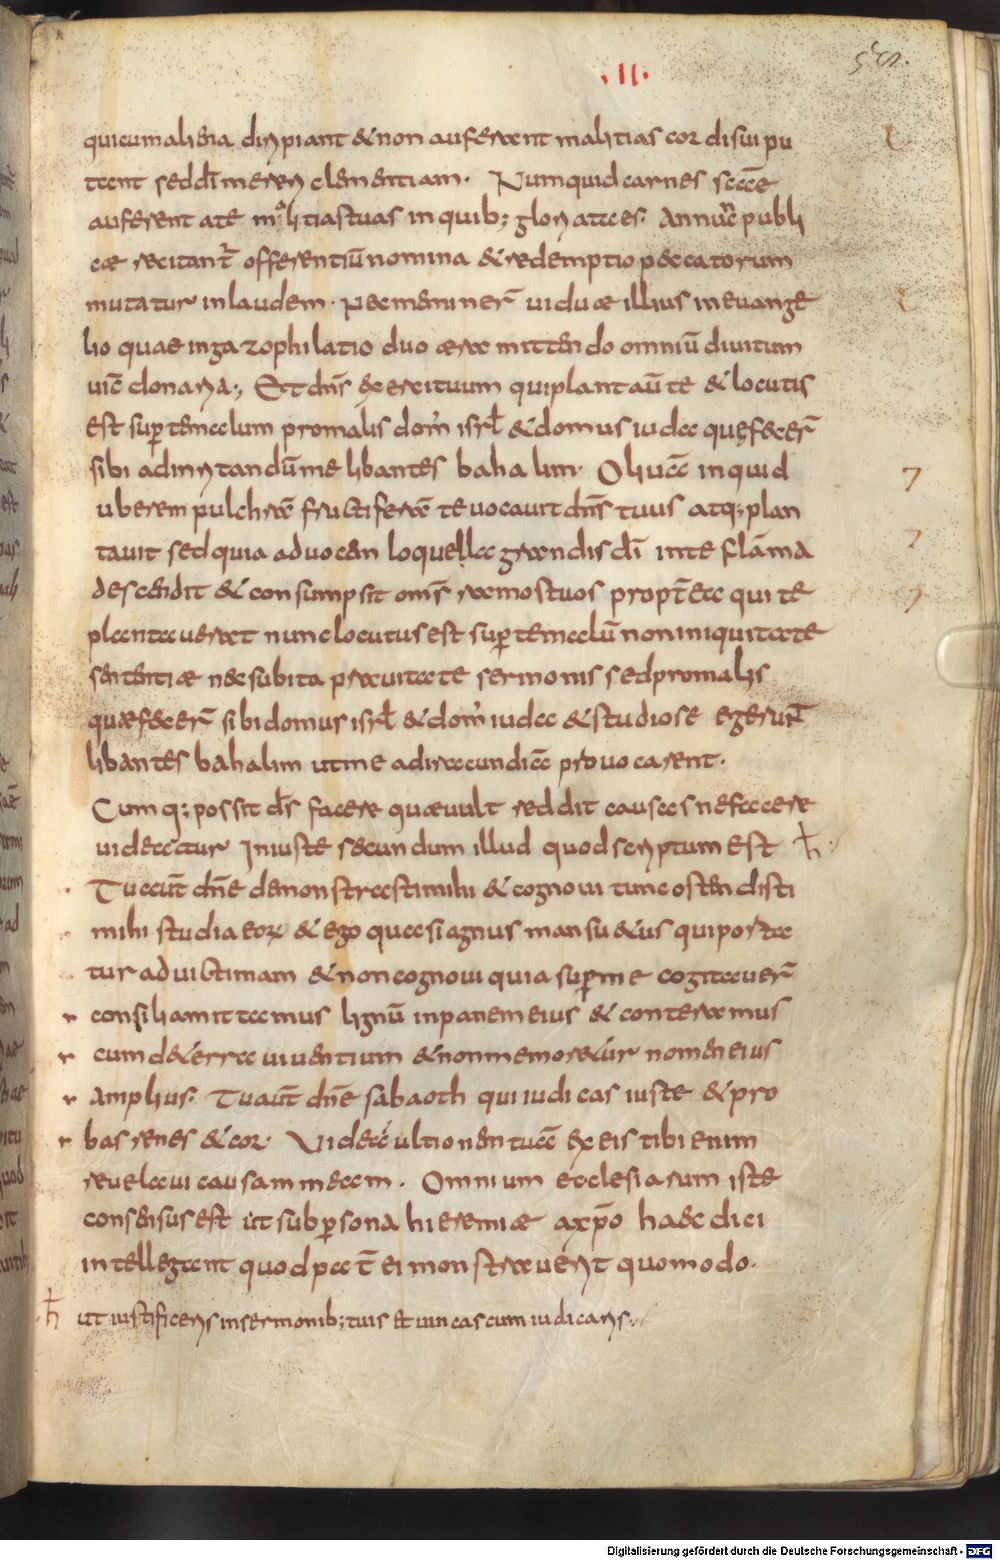 .II.
58.
qui cum aliena diripiant & non auferant malitias cor di sui pu
tant se dī merery clementiam. Numquid carnes sc̄ae
auferent a te malitias tuas in quib; gloriata es. At nunc publi
cae recitant̄ offerentiū nomina & redemptio peccatorum
mutatur in laudem. Nec meminer̄ viduae illius in evange
lio quae in gazophilatio duo aera mittendo omniū divitum
vic̄ donaria; Et dn̄s exercituum qui plantaū te & locutis
est sup̄ te malum pro malis dom̄ isrl̄ & domus iudae quę fecer̄
sibi ad irritandū me libantes bahalim. Olivā inquid
uberem pulchrā fructiferā te vocavit dn̄s tuus atq; plan
tavit sed quia ad vocem loquellae grandis dī in te flāma
descendit & consumpsit om̄s ramos tuos propt̄ ea qui te
plantaverat nunc locutus est sup̄ te malū non iniquitate
sententiae nec subita pravitate sermonis sed pro malis
quae fecer̄ sibi domus isrl̄ & dom̄ iudae & studiose egerunt̄
libantes bahalim ut me ad iracundiā provocarent.
Cumq; possit ds̄ facere quae vult reddit causas ne facere
videatur iniuste secundum illud quod scriptum est ħ
Tu aut̄ dn̄e demonstrasti mihi & cognovi tunc ostendisti
mihi studia eorꝝ & ego quasi agnus mansu&us qui porta
tur ad victimam & non cognovi quia sup̄ me cogitaver̄
consilia mittamus lignū in panem eius & conteramus
eum de terra viventium & non memor&ur nomen eius
Amplius. Tu aut̄ dn̄e sabaoth qui iudicas iuste & pro
bas renes & cor. Videā ultionem tuā ex eis tibi enim
revelavi causam meam. Omnium ecclesiarum iste
consensus est ut sub p̄sona hieremiae a xp̄o haec dici
intellegant quod pat̄ ei monstraverit quomodo.
ħ ut iustificeris in sermonib; tuis et vincas cum iudicaris.
Digitalisierung gefördert durch die Deutsche Forschungsgemeinschaft - DFG